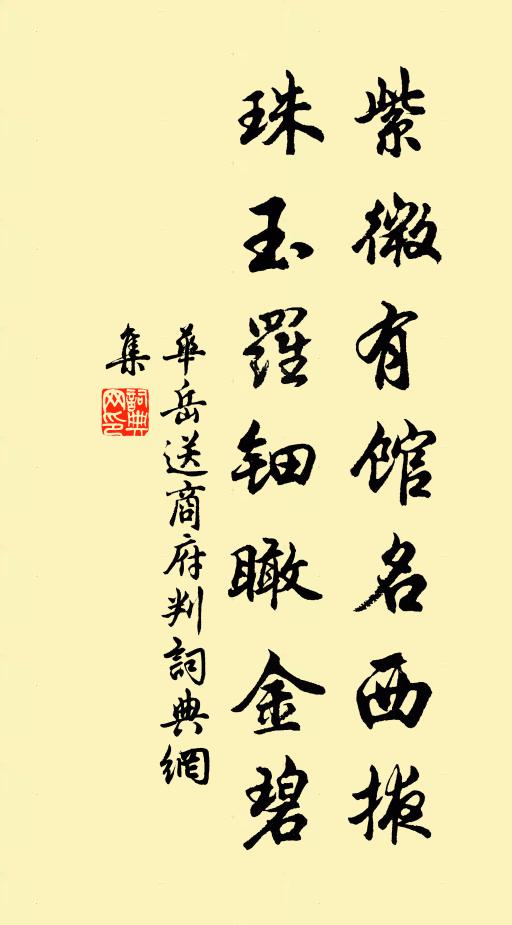 紫微有館名西掖
珠玉羅鈿瞰金碧
華岳送商府判詞典網
集
詞典
网印